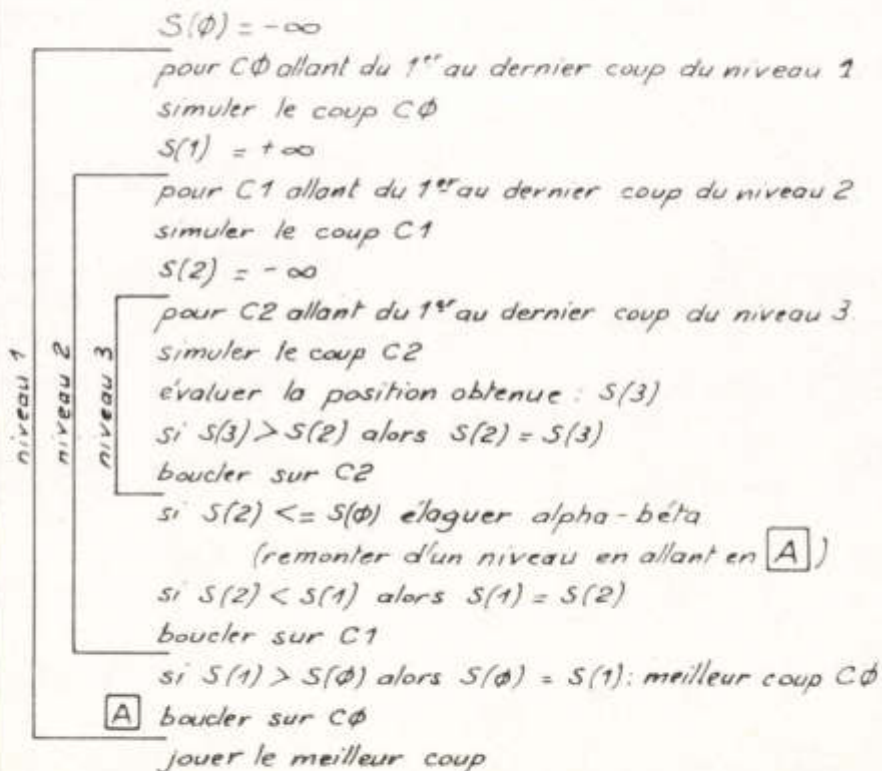 S(Ø) = -∞
pour CØ allant du 1er au dernier coup du niveau 1
simuler le coup CØ
S(1) = +∞
pour C1 allant du 1er au dernier coup du niveau 2
simuler le coup C1
S(2) = -∞
pour C2 allant du 1er au dernier coup du niveau 3.
simuler le coup C2
évaluer la position obtenue : S(3)
si S(3) > S(2) alors S(2) = S(3)
boucler sur C2
si S(2) <= S(Ø) élaguer alpha-béta
(remonter d'un niveau en allant en A)
si S(2) < S(1) alors S(1) = S(2)
boucler sur C1
si S(1) > S(Ø) alors S(Ø) = S(1): meilleur coup CØ
A boucler sur CØ
jouer le meilleur coup
niveau 1
niveau 2
niveau 3